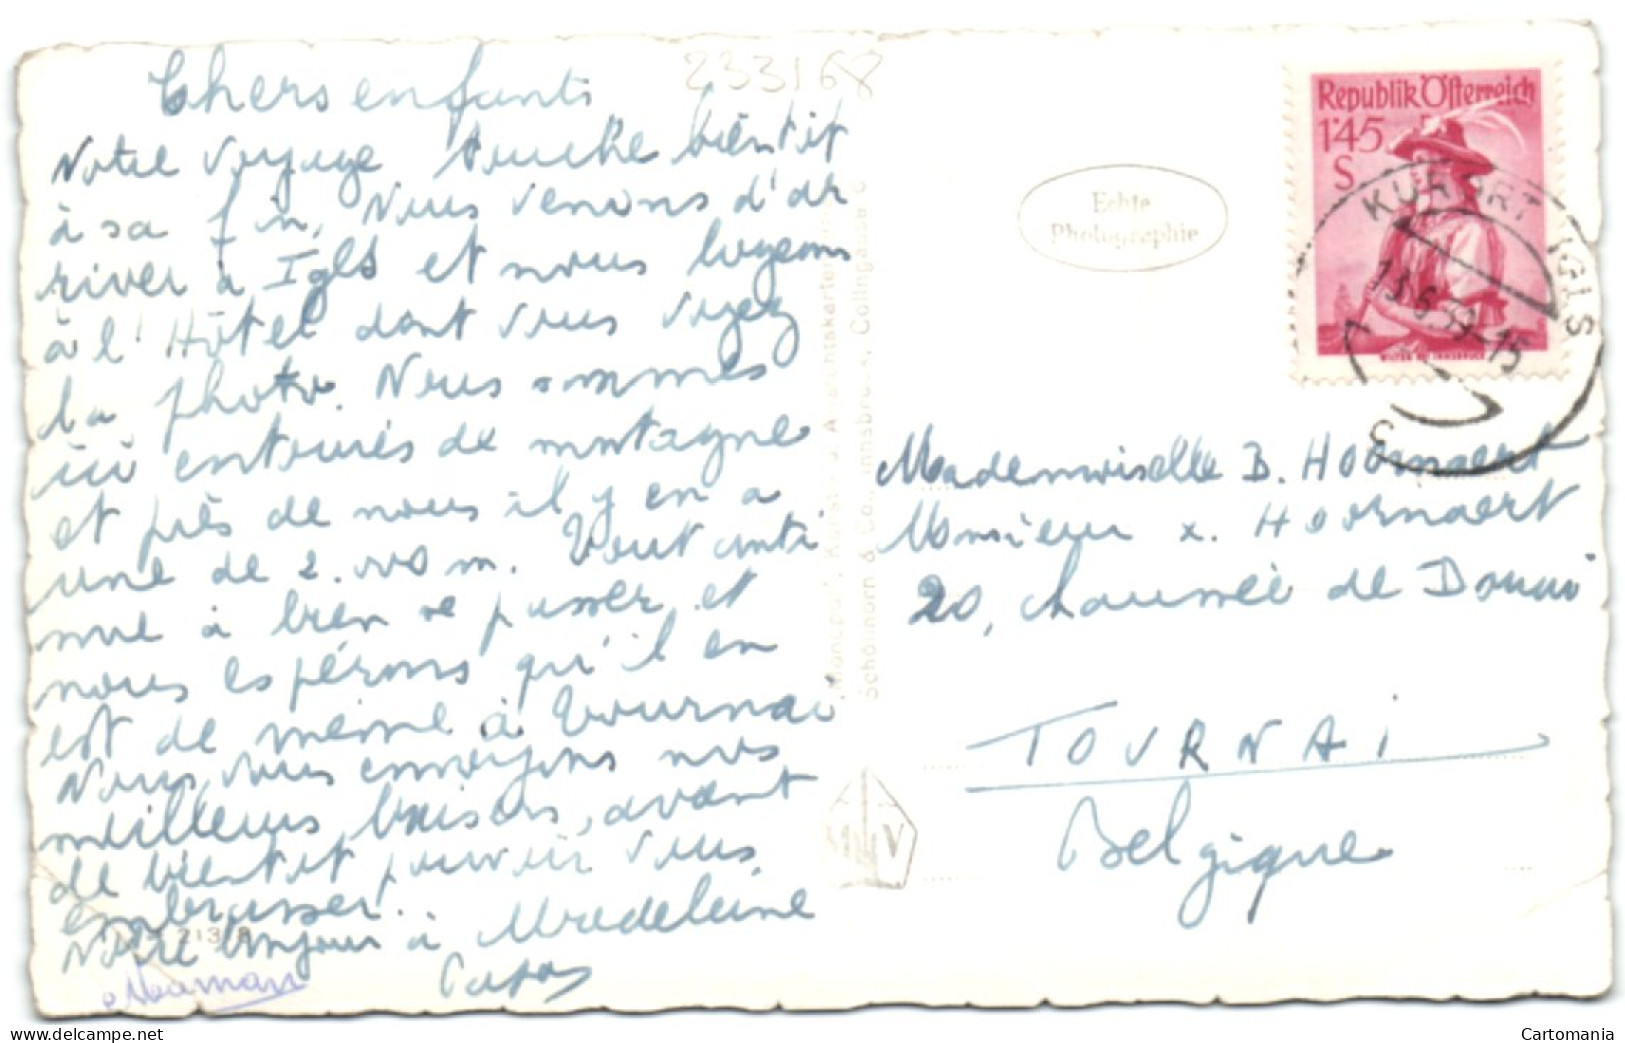 233168
Chers enfants
Notre voyage touche bientôt
à sa fin, Nous venons d'ar
river à Igls et nous logeons
à l'Hôtel dont vous voyez
la photo. Nous sommes
ici entourés de montagne
et près de nous il y en a
une de 2.000 m. Tout conti
nue à bien se passer et
nous espérons qu'il en
est de même à Tournai
Nous vous envoyons nos
meilleurs baisers, avant
de bientôt pouvoir vous
embrasser.
Notre bonjour à Madeleine
Maman
Papa
Echte
Photographie
Schöllhorn & Co., Innsbruck, Collingasse
Republik Österreich
1'45
S
WILTEN BEI INNSBRUCK
KURORT IGLS
13.6.59-15
Mademoiselle B. Hoornaert
Monsieur X. Hoornaert
20, chaussée de Douai
TOURNAI
Belgique
delcampe.net
Cartomania